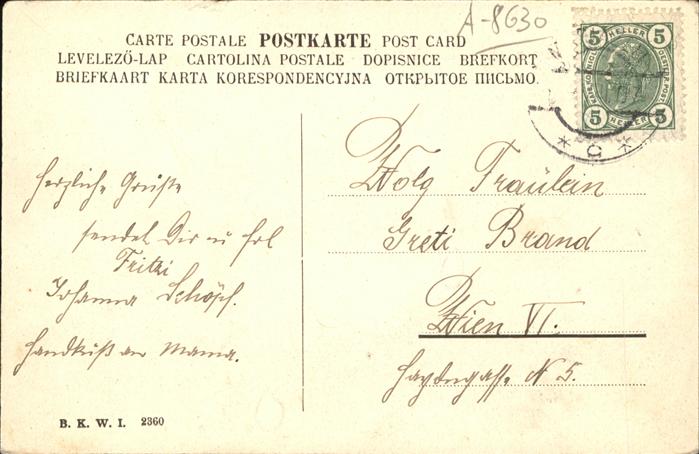 A-8630
CARTE POSTALE POSTKARTE POST CARD
LEVELEZŐ-LAP CARTOLINA POSTALE DOPISNICE BREFKORT
BRIEFKAART KARTA KORESPONDENCYJNA ОТКРЫТОЕ ПИСЬМО.
5 HELLER 5
5 HELLER 5
C
Herzliche Grüße
sendet Dir u Frl
Fritzi
Johanna Schöpf.
Handkuß an Mama.
Wolg Fräulein
Greti Brand
Wien VI.
Haydngasse N 5.
B. K. W. I. 2360